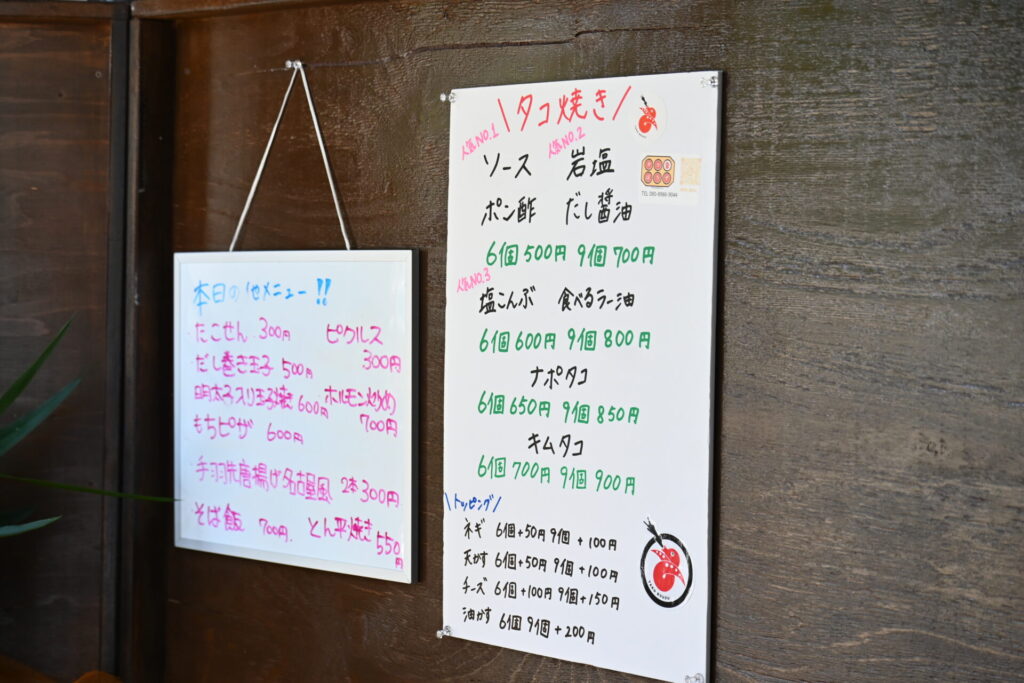 本日の他メニュー!!
たこせん 300円 ピクルス 300円
だし巻き玉子 500円
明太子入り玉子焼 600円 ホルモン炒め 700円
もちピザ 600円
手羽先唐揚げ名古屋風 2本300円
そば飯 700円. とん平焼き 550円
\タコ焼き/
人気NO.1 人気NO.2
ソース 岩塩
ポン酢 だし醤油
6個500円 9個700円
人気NO.3
塩こんぶ 食べるラー油
6個600円 9個800円
ナポタコ
6個650円 9個850円
キムタコ
6個700円 9個900円
\トッピング/
ネギ 6個+50円 9個+100円
天かす 6個+50円 9個+100円
チーズ 6個+100円 9個+150円
油かす 6個 9個+200円